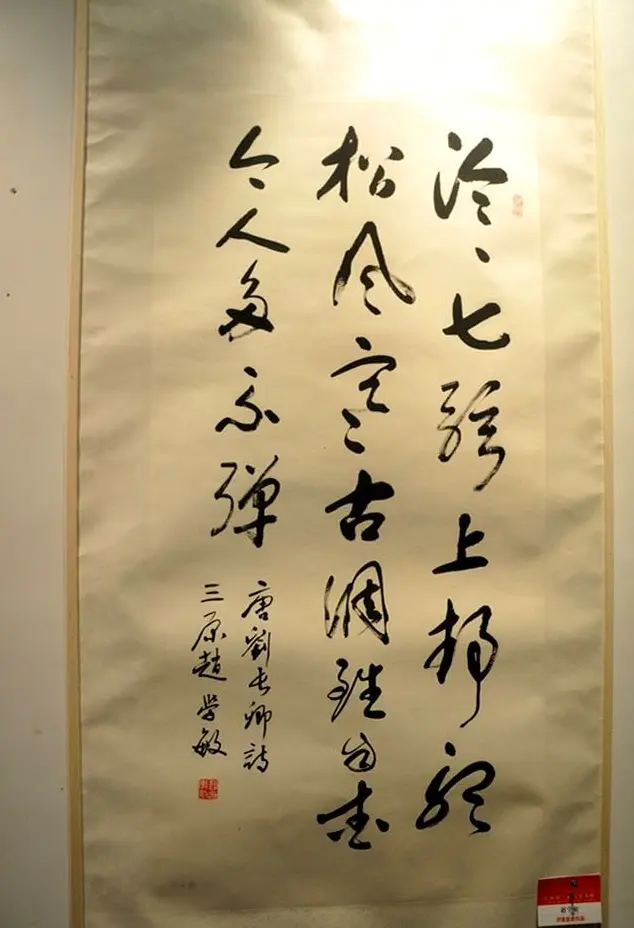 泠々七弦上静聽
松风寒古调雖自愛
今人多不弹
唐劉長卿詩
三原趙学敏